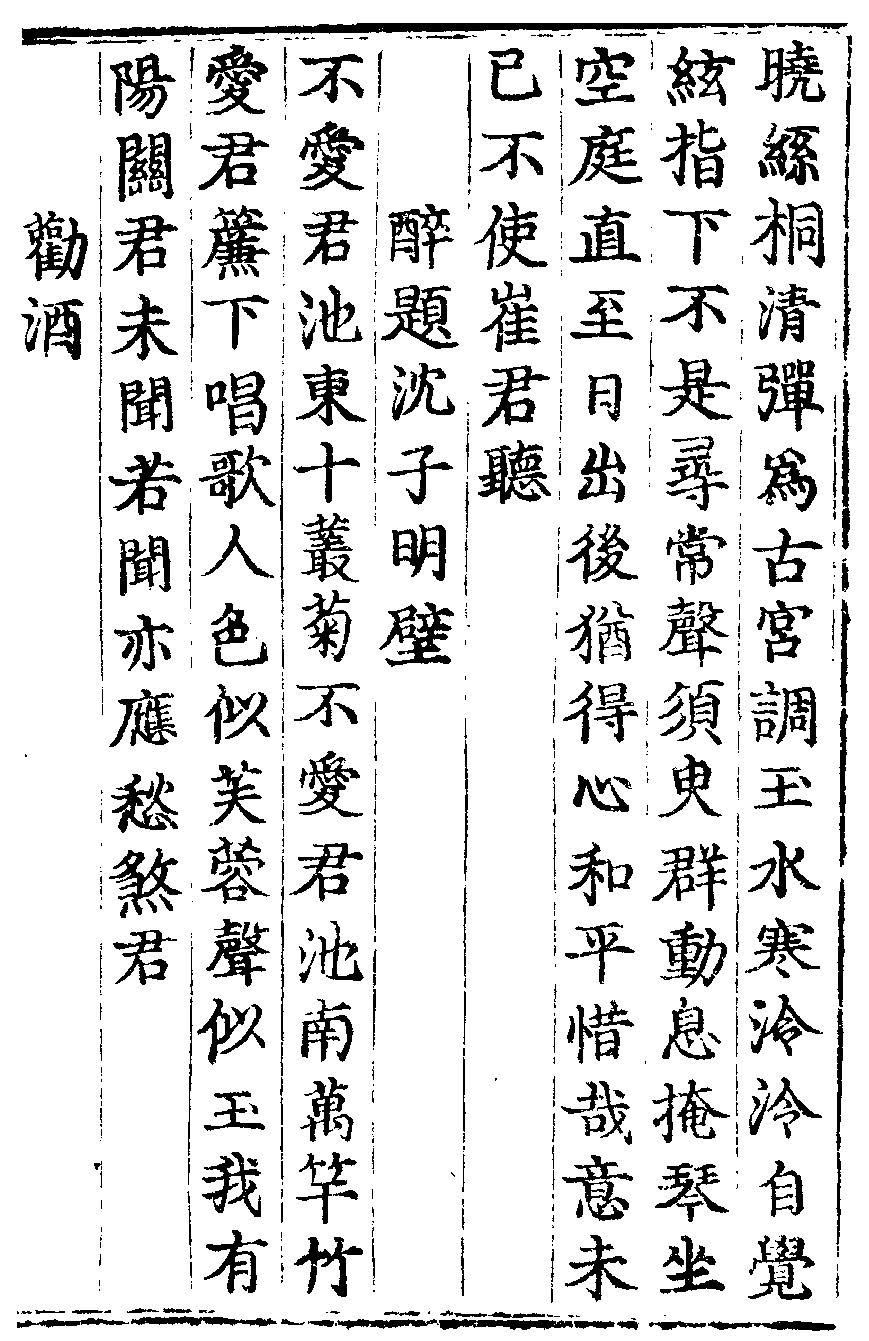 曉絲桐清彈為古宮調玉水寒泠泠自覺
絃指下不是尋常聲須臾群動息掩琴坐
空庭直至日出後猶得心和平惜哉意未
已不使崔君聽
醉題沈子明壁
不愛君池東十叢菊不愛君池南萬竿竹
愛君簾下唱歌人色似芙蓉聲似玉我有
陽關君未聞若聞亦應愁煞君
勸酒